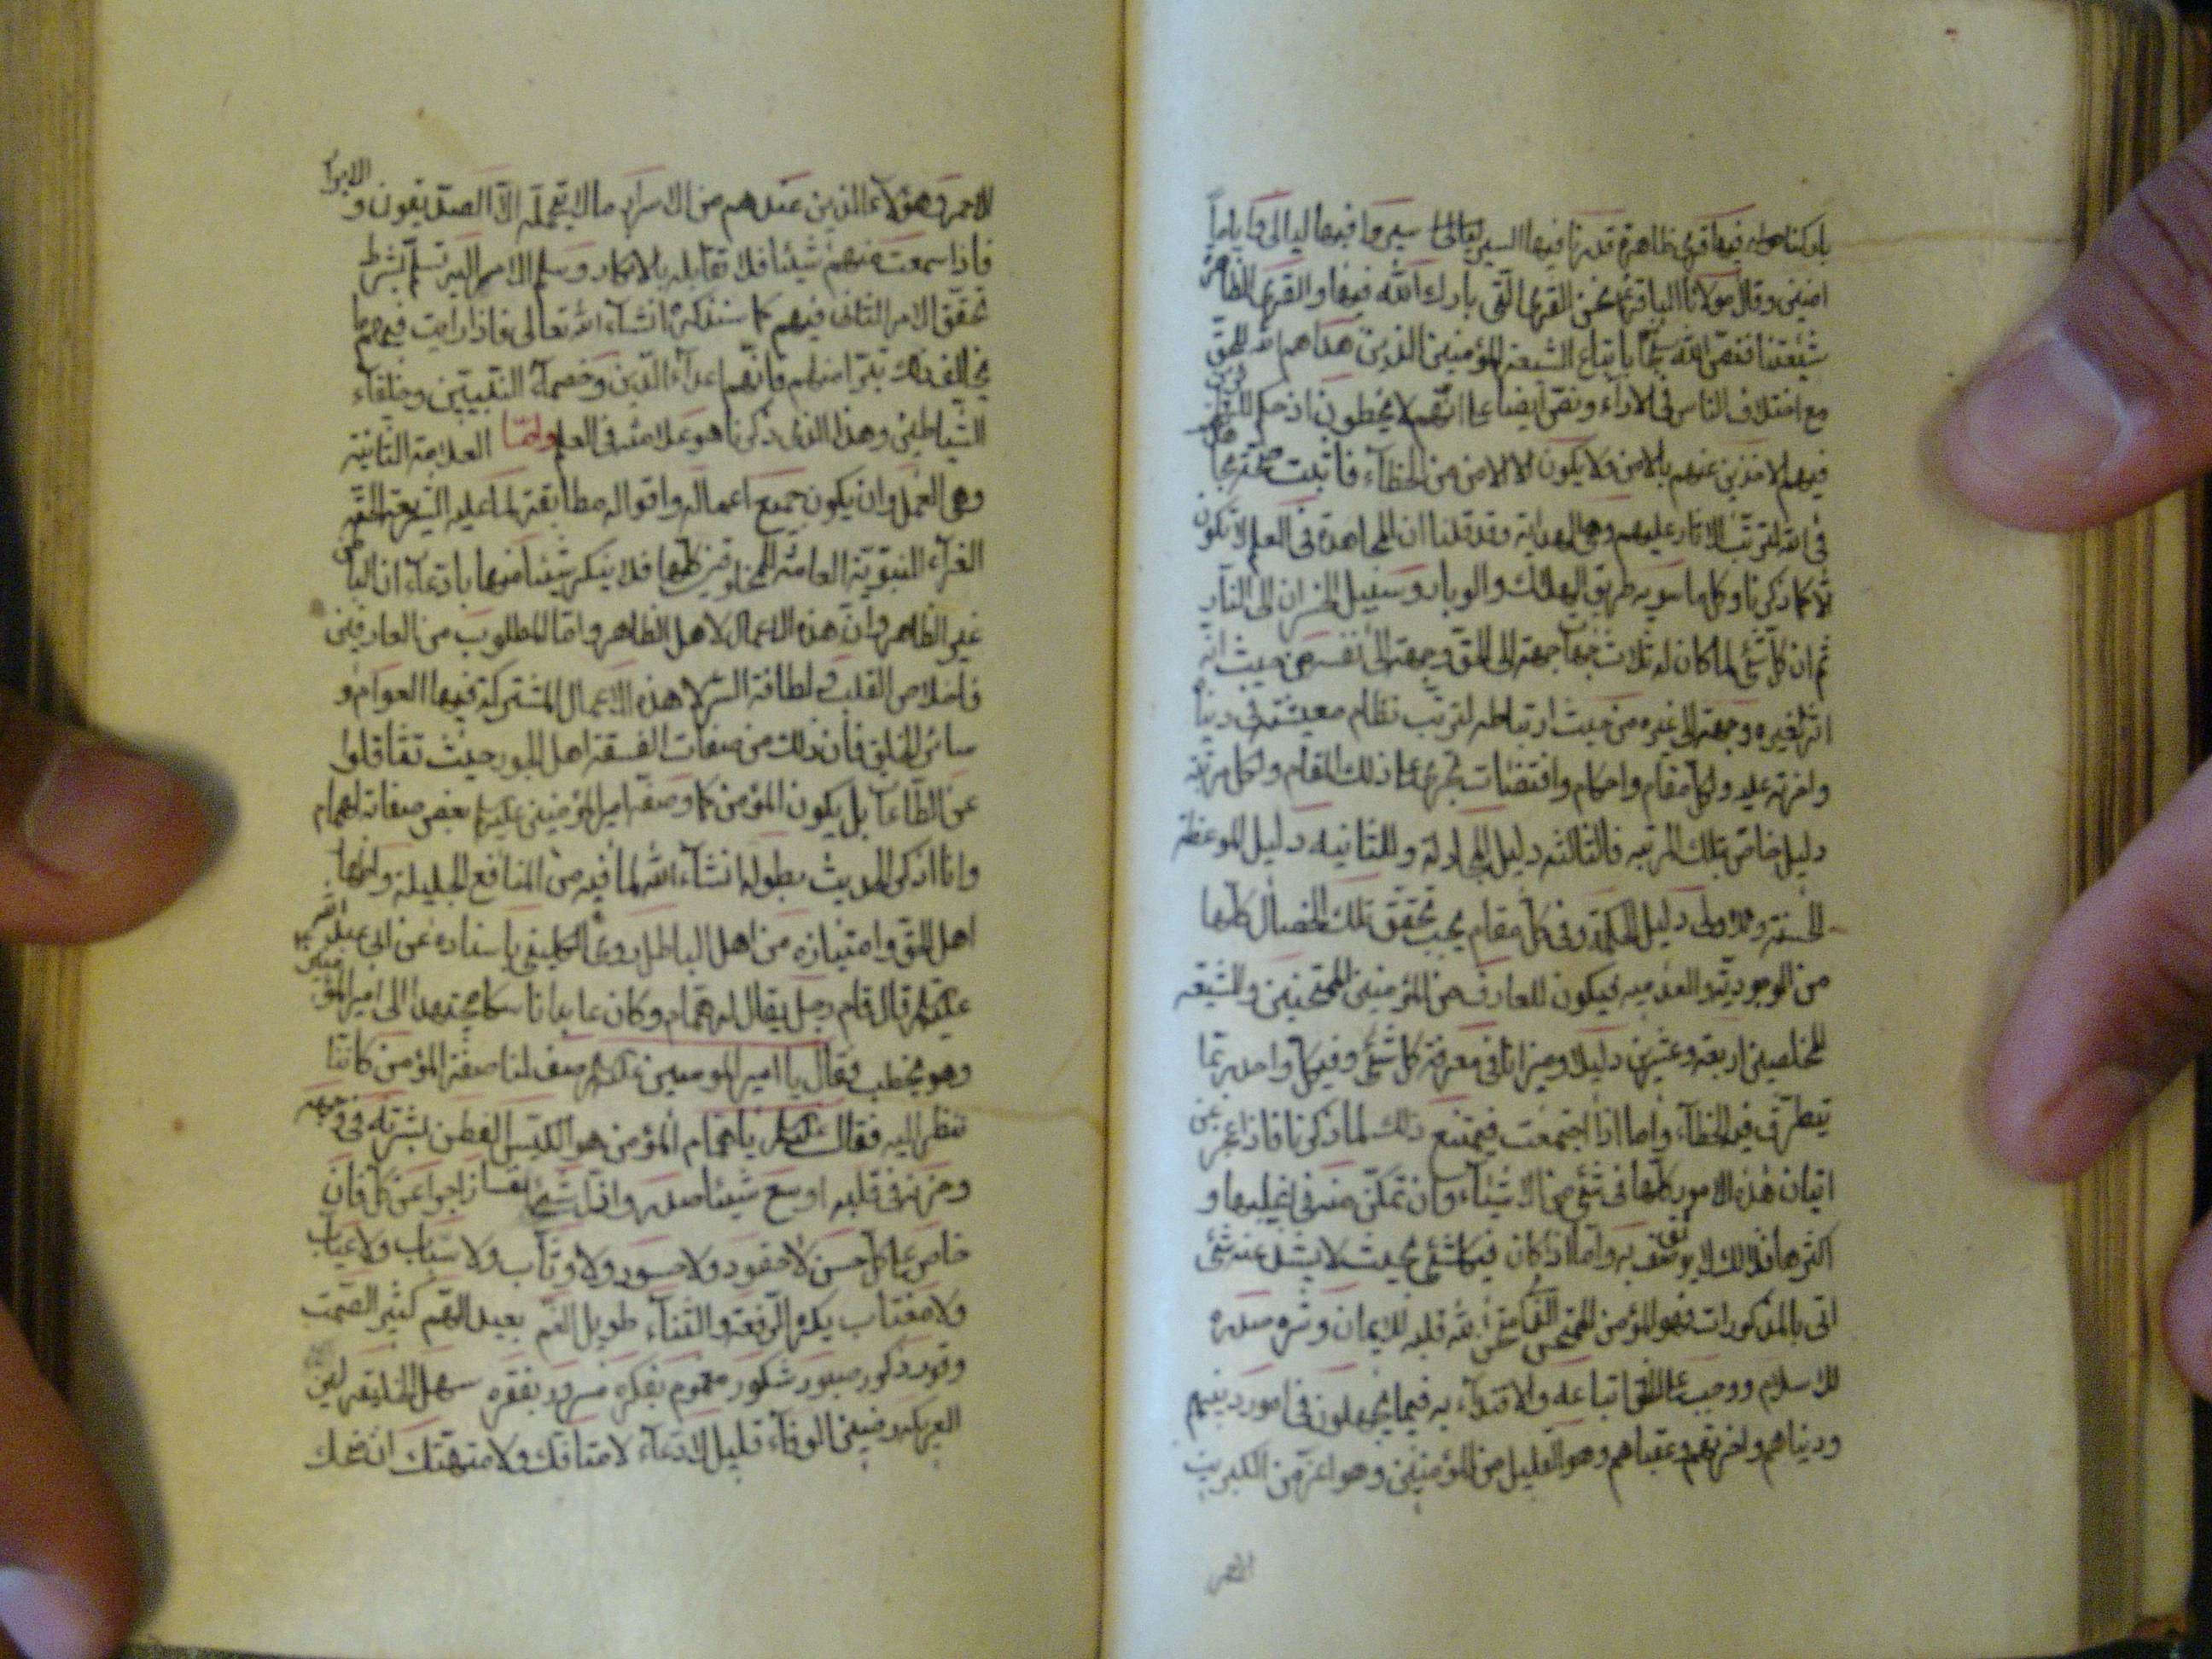 باركنا فيها قرى ظاهرة قدرنا فيها السير سيروا فيها ليالي واياماً
امنين وقال مولانا الباقر نحن القرى التي بارك الله فيها والقرى الظاهرة
شيعتنا فنص الله باتباع الشيعة المؤمنين الذين هداهم الله للحق
مع اختلاف الناس في الاراء ونص ايضا على انهم لا يخطون اذ حكم
فيهم الاخذين عنهم بالامن ولا يكون الا الامن من الخطاء فاثبت
في الله لترتب الاثار عليهم وهي الهداية وقد قلنا ان المجاهدة في العلم لا تكون
الا كما ذكرنا وكل ما سويه طريق الهلاك والوبار وسبيل الخسران الى النار
ثم ان كل شئ لما كان له ثلاث جهات جهة الى الحق وجهة الى نفسه من حيث انه
اثر لغيره وجهة الى غيره من حيث ارتباطه لترتب نظام معيشته في دنياه
واخرته عليه ولكل مقام واحكام واقتضاات تجري على ذلك المقام ولكل مرتبة
دليل خاص بتلك المرتبه فالثالثه دليل المجادلة وللثانيه دليل الموعظة
الحسنة وللاولى دليل الحكمة وفي كل مقام يجب تحقق تلك الخصال كلها
من الوجودية والعدميه فيكون للعارف من المؤمنين الممتحنين والشيعة
المخلصين اربعة وعشرين دليلا وميزانا في معرفة كل شئ وفي كل واحد ربما
يتطرق فيه الخطاء واما اذا اجتمعت فيمتنع ذلك لما ذكرنا فاذا عجز عن
اتيان هذه الامور كلها في شئ من الاشياء وان تمكن منه في اغلبها و
اكثرها فذلك لا يوثق به واما اذا كان في كل شئ بحيث لا يشذ عنه شئ
اتى بالمذكورات فهو المؤمن الممتحن الذي امتحن الله قلبه للايمان وشرح صدره
للاسلام ووجب على الخلق اتباعه والاقتداء به فيما يجهلون في امور دينهم
ودنياهم واخرتهم وعقباهم وهو القليل من المؤمنين وهو اعز من الكبريت
الاحمر
الاحمر وهؤلاء الذين عندهم من الاسرار ما لا يتحمله الا الصديقون و الابرار
فاذا سمعت منهم شيئا فلا تقابله بالانكار وسلم الامر اليهم تسلم بشرط
تحقق الامر الثاني فيهم كما سنذكره انشاء الله تعالى فاذا رايت فيهم ما
يخالف ذلك تبرا منهم فانهم اعداء الدين وخصماء النبيين وخلفاء
الشياطين وهذا الذي ذكرنا هو علامته في العلم واما العلامة الثانية
وهي العمل وان يكون جميع اعماله واقواله مطابقة لما عليه الشريعة الحقه
الغراء النبوية العامة للمخلوقين كلها فلا ينكر شيئا منها بادعاء ان الباطن
غير الظاهر وان هذه الاعمال لاهل الظاهر واما المطلوب من العارفين
فاخلاص القلب ولطافة السر لا هذه الاعمال المشتركة فيها العوام و
سائر الخلق فان ذلك من صفات الفسقة اهل الجور حيث تثاقلوا
عن الطاعات بل يكون المؤمن كما وصفه امير المؤمنين عليه السلام بعض صفاته لهمام
وانا اذكر الحديث بطوله انشاء الله لما فيه من المنافع الجليلة
اهل الحق وامتيازه من اهل الباطل روى الكليني باسناده عن ابي عبد الله
عليه السلام قال قام رجل يقال له همام وكان عابدا ناسكا مجتهدا الى امير المؤمنين
وهو يخطب فقال يا امير المومنين صف لنا صفة المؤمن كاننا
ننظر اليه فقال يا همام المؤمن هو الكيس الفطن بشره في وجهه
وحزنه في قلبه اوسع شيئا صدره واذل شئ نفسا زاجر عن كل فان
حاض على كل حسن لا حقود ولا حسود ولا وثاب ولا سباب ولا عياب
ولا مغتاب يكره الرفعة والثناء طويل الغم بعيد الهم كثير الصمت
وقور ذكور صبور شكور مغموم بفكره مسرور بفقره سهل الخليقه لين
العريكه رصين الوفاء قليل الاذاء لا متافك ولا متهتك ان ضحك